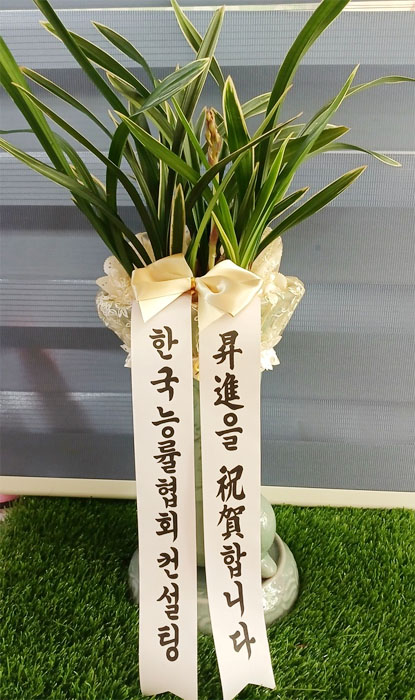 昇進을 祝賀합니다
한국능률협회컨설팅